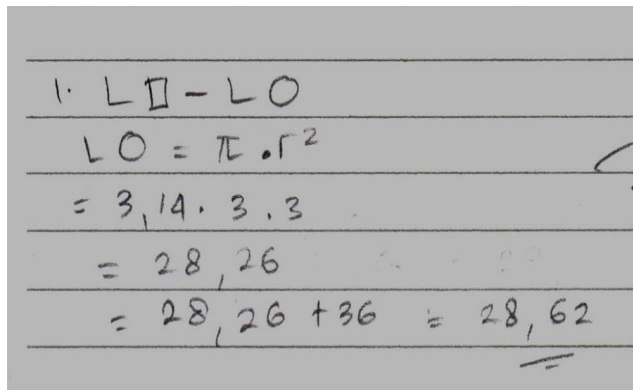 1. L□ - L○
L○ = π . r²
= 3,14 . 3 . 3
= 28,26
= 28,26 + 36 = 28,62